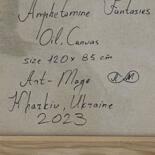 Amphetamine Fantasies
Oil, Canvas
size 120 x 85 cm
Art-Mago
Kharkiv, Ukraine
2023